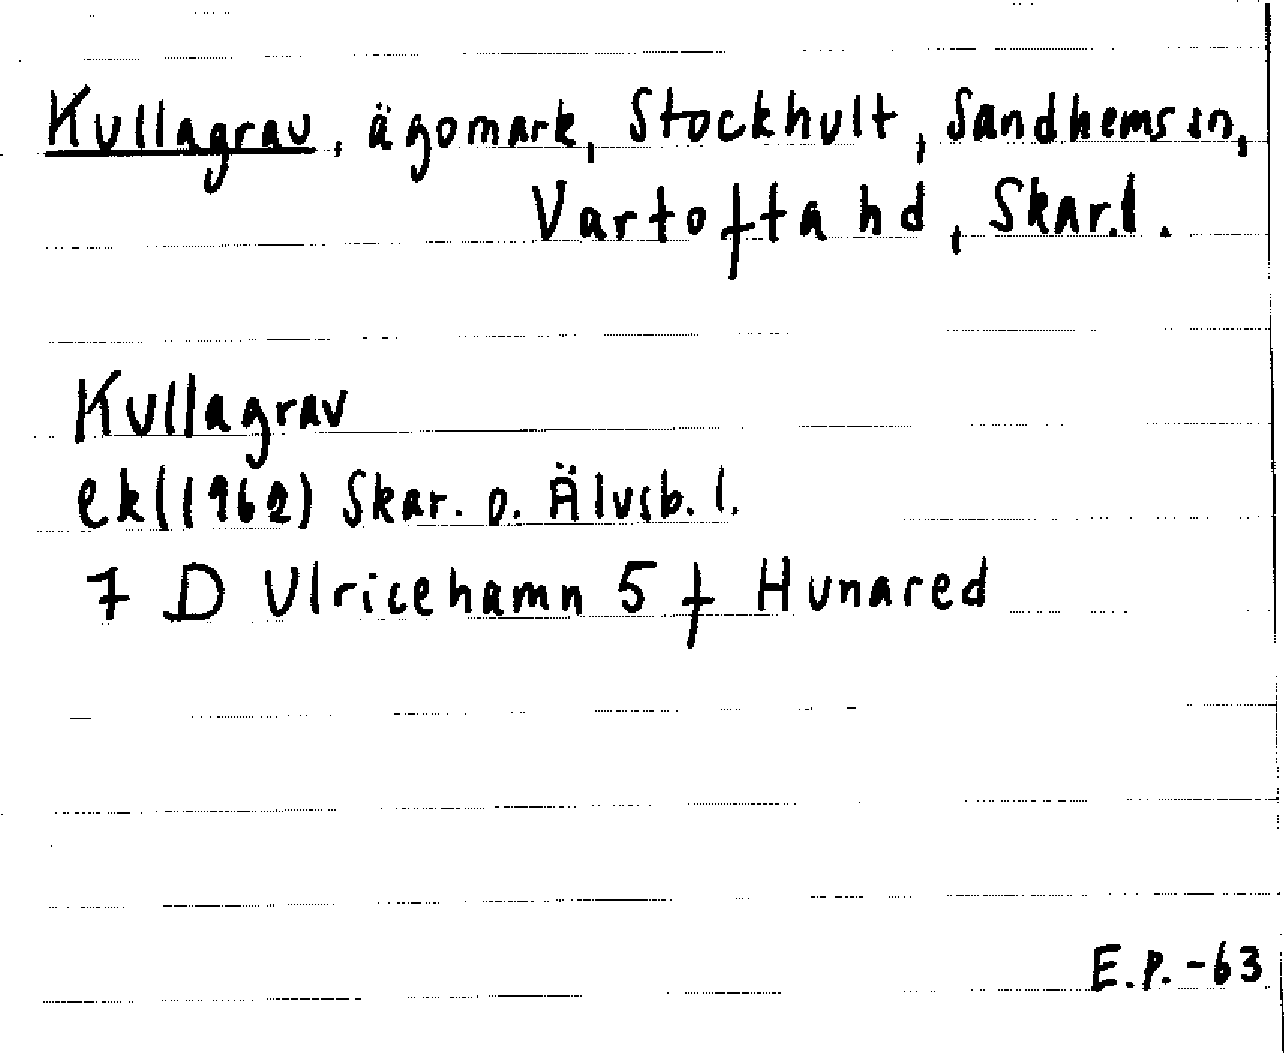 Kullagrav, ägomark, Stockhult, Sandhems sn,
Vartofta hd, Skar.l.
Kullagrav
ek(1962) Skar. o. Älvsb. l.
7 D Ulricehamn 5 f Hunared
E.P.-63